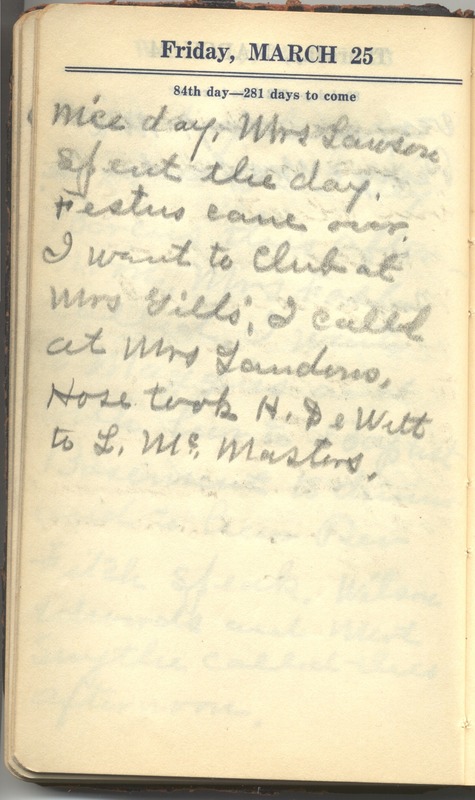 Friday, MARCH 25
84th day—281 days to come
Nice day, Mrs Lawson
spent the day.
Festus came over.
I went to Club at
Mrs Gills', I called
at Mrs Landons,
Hose took H. DeWitt
to L. Mc Masters.